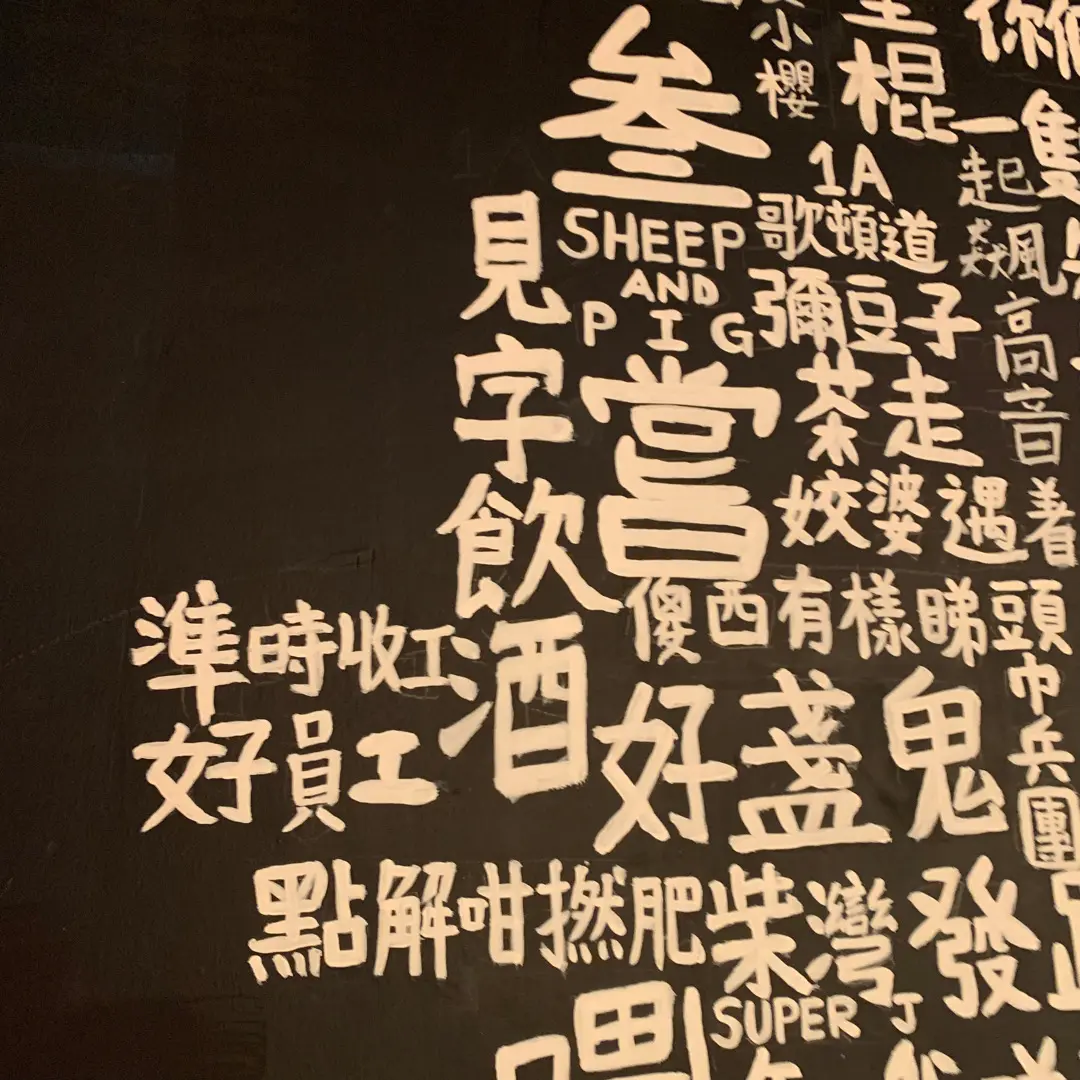 小櫻
棍
叁
1A
一起
隻
歌頓道
SHEEP
AND
PIG
見字飲酒
彌豆子
高音
嘗
茶走
姣婆遇着
傻西有樣睇頭
準時收工
好盞鬼
巾兵團
好員工
點解咁撚肥
柴灣
發
SUPER J